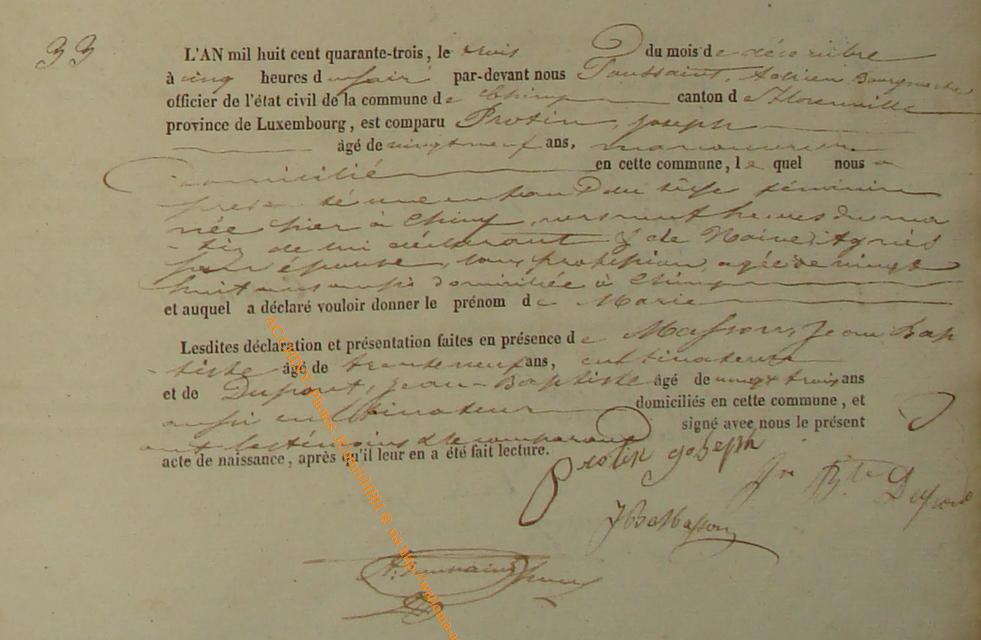 33
L'AN mil huit cent quarante-trois, le trois du mois de décembre
à cinq heures du soir par-devant nous Toussaint, Adrien Bourgmestre
officier de l'état civil de la commune de Chiny canton de Florenville
province de Luxembourg, est comparu Protin, joseph
âgé de vingt neuf ans, manouvrier
domicilié en cette commune, le quel nous a
présenté une enfant du sexe féminin
née hier à Chiny, vers neuf heures du ma
-tin de lui déclarant & de Agnès
son épouse, sans profession, agée de vingt
huit ans aussi domiciliée à Chiny
et auquel a déclaré vouloir donner le prénom de Marie
Lesdites déclaration et présentation faites en présence de Masson, Jean Bap
-tiste âgé de trente neuf ans, cultivateur
et de Dupont, jean-Baptiste âgé de vingt trois ans
aussi cultivateur domiciliés en cette commune, et
ont les témoins & le comparant signé avec nous le présent
acte de naissance, après qu'il leur en a été fait lecture.
Protin joseph
Jn Bte Dupont
JBMasson
A. Toussaint